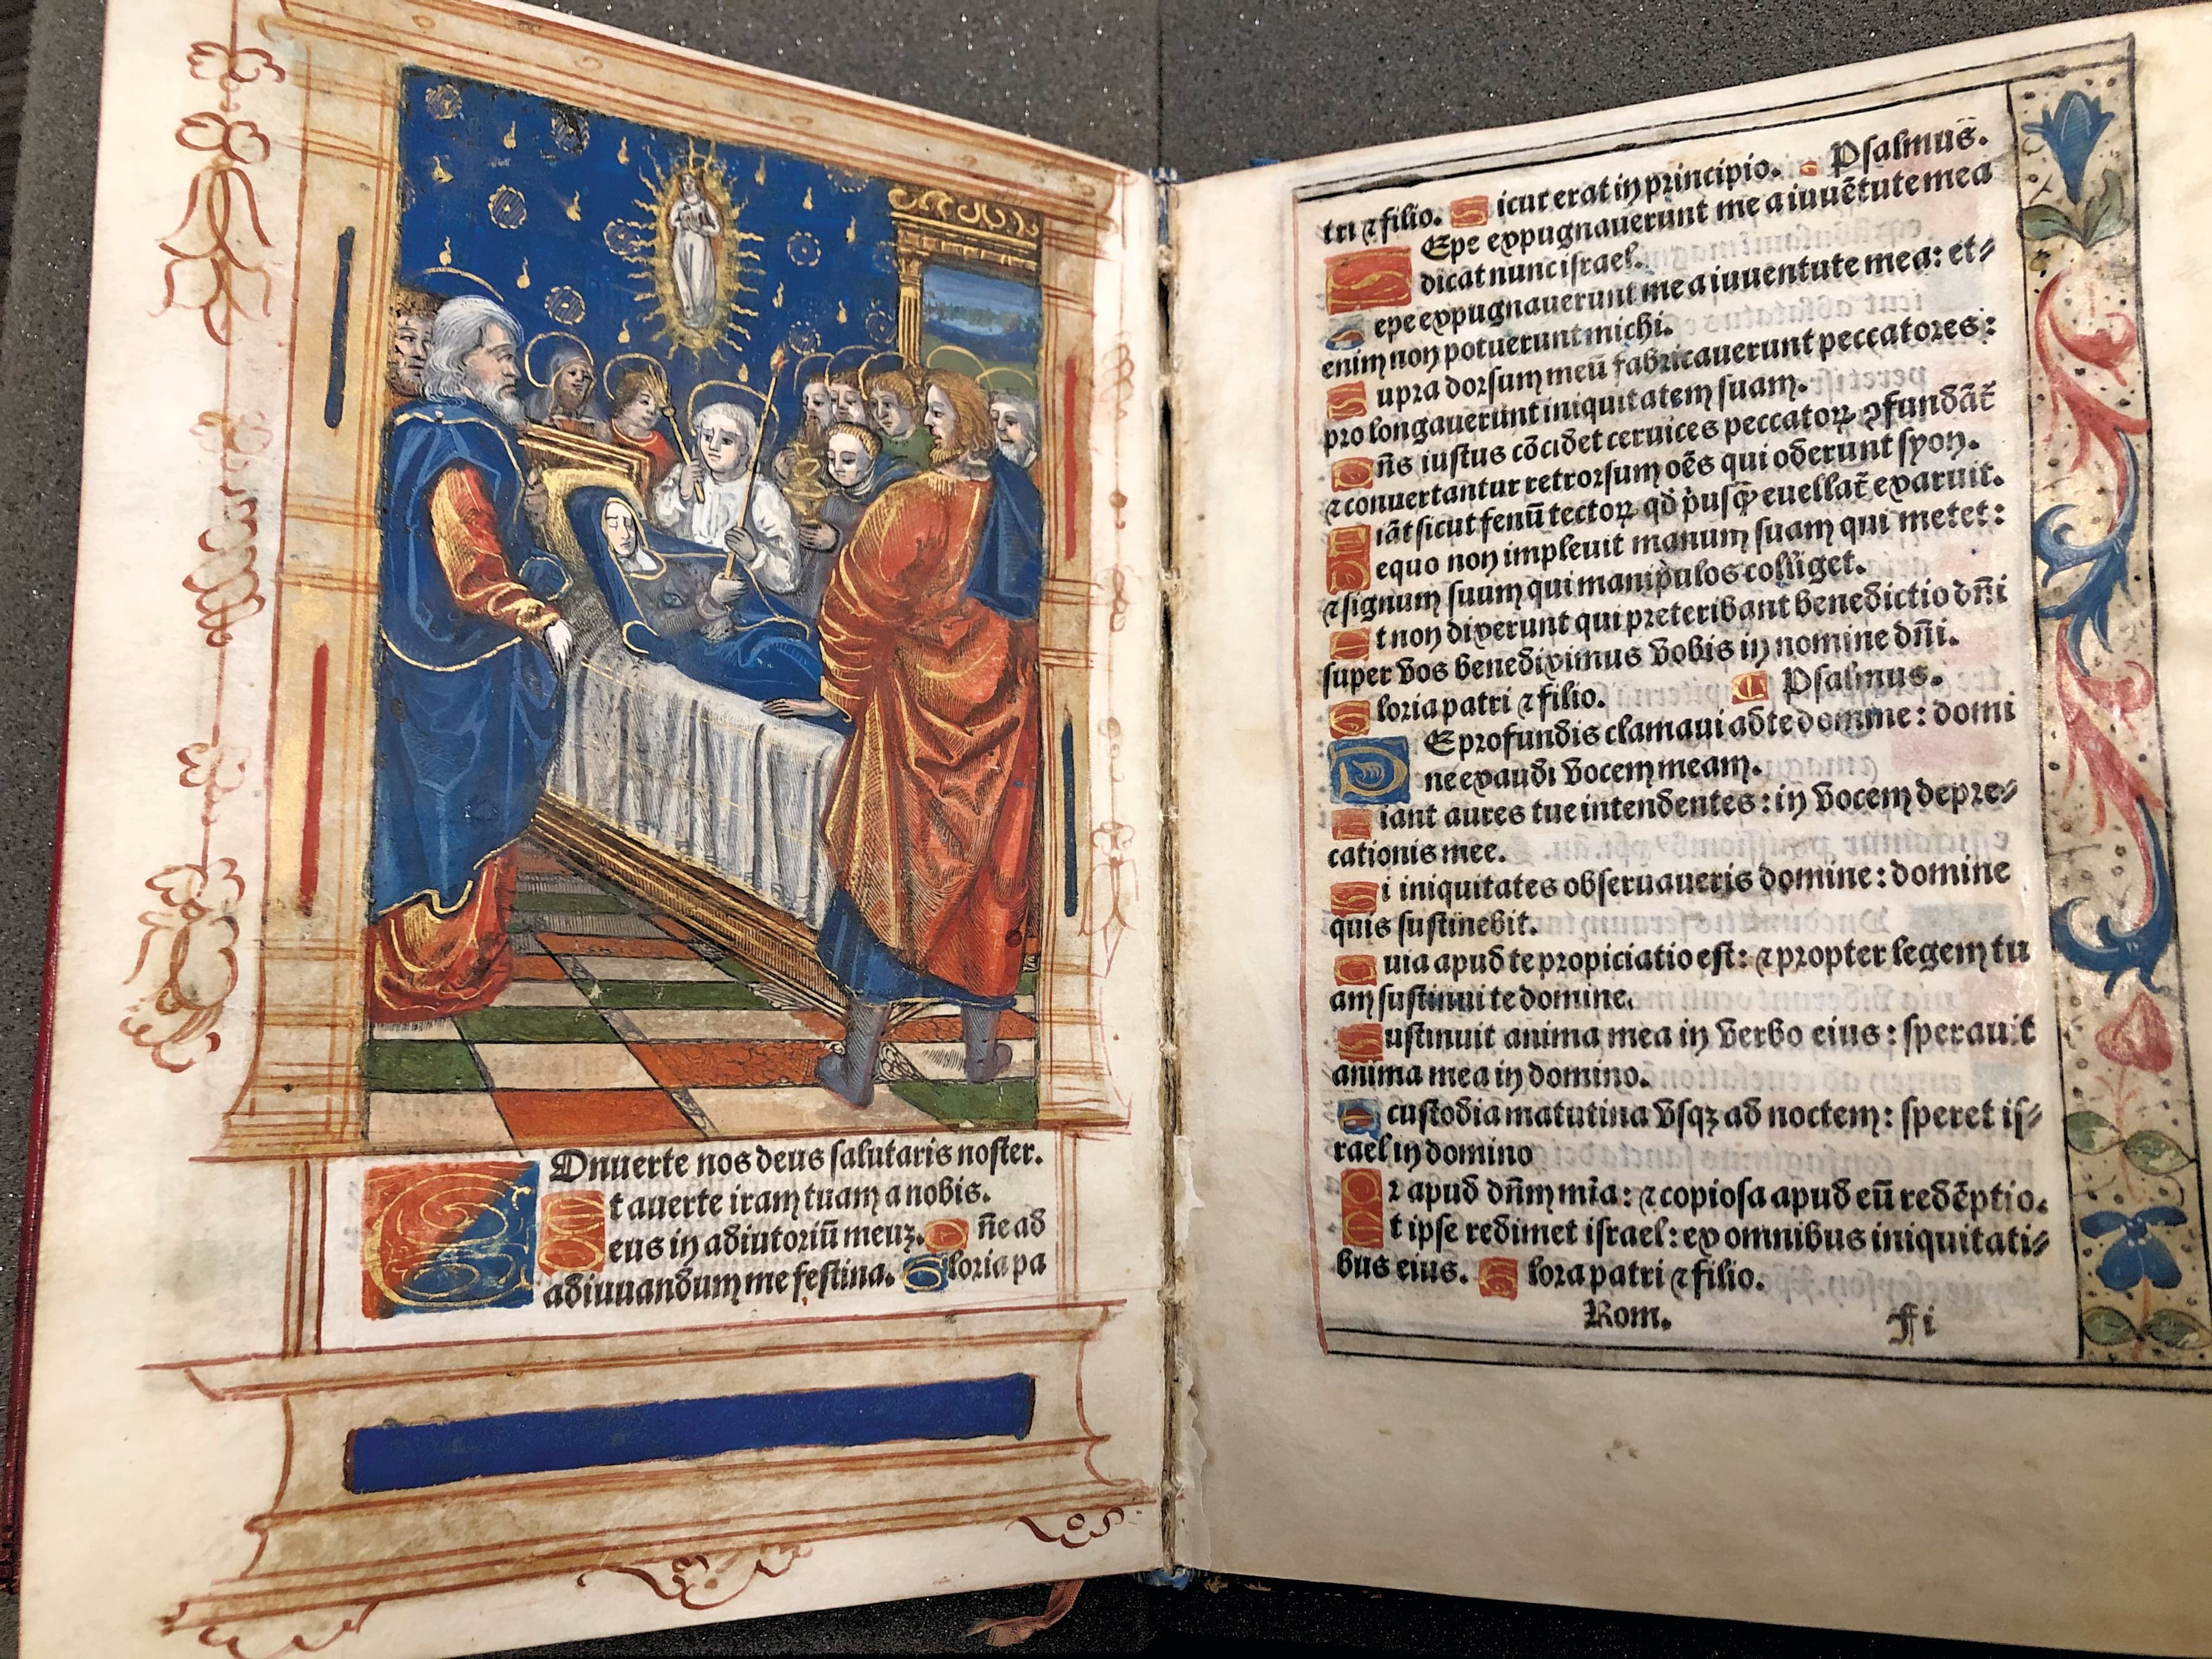 Onuerte nos deus salutaris noster.
Et auerte iram tuam a nobis.
Deus in adiutoriū meuz. Dn̄e ad
adiuuandum me festina. Gloria pa
tri ⁊ filio. Sicut erat in principio. Psalmus.
SEpe expugnauerunt me a iuuētute mea
dicat nunc israel.
Sepe expugnauerunt me a iuuentute mea: et⸗
enim non potuerunt michi.
Supra dorsum meū fabricauerunt peccatores:
prolongauerunt iniquitatem suam.
Dn̄s iustus cōcidet ceruices peccatoꝝ ꝯfundāt̄
⁊ conuertantur retrorsum oēs qui oderunt syon.
Fiāt sicut fenū tectoꝝ qd̄ pusq̄ȝ euellat̄ exaruit.
De quo non impleuit manum suam qui metet:
⁊ signum suum qui manipulos colliget.
Et non dixerunt qui preteribant benedictio dn̄i
super vos benediximus vobis in nomine dn̄i.
Gloria patri ⁊ filio. Psalmus.
DE profundis clamaui ad te domine: domi
ne exaudi vocem meam.
Fiant aures tue intendentes: in vocem depre⸗
cationis mee.
Si iniquitates obseruaueris domine: domine
quis sustinebit.
Quia apud te propiciatio est: ⁊ propter legem tu
am sustinui te domine.
Sustinuit anima mea in verbo eius: sperauit
anima mea in domino.
A custodia matutina vsqꝫ ad noctem: speret is⸗
rael in domino
Qꝛ apud dn̄m mīa: ⁊ copiosa apud eū redēptio.
Et ipse redimet israel: ex omnibus iniquitati⸗
bus eius. Glora patri ⁊ filio.
Rom. Fi